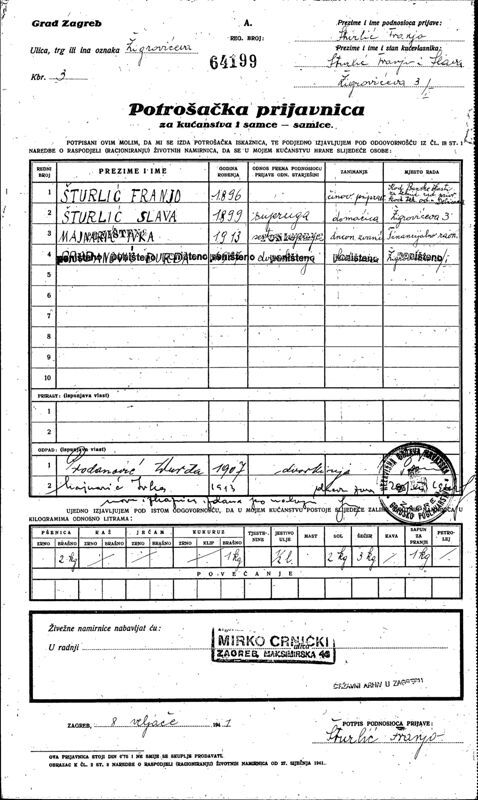 Grad Zagreb
A.
Prezime i ime podnosioca prijave:
REG. BROJ:
Šturlić Franjo
Ulica, trg ili ina oznaka Žigrovićeva
64199
Prezime i ime i stan kućevlasnika:
Šturlić Franjo i Slava
Kbr. 3
Žigrovićeva 3/I
Potrošačka prijavnica
za kućanstva i samce — samice.
POTPISANI OVIM MOLIM, DA MI SE IZDA POTROŠAČKA ISKAZNICA, TE PODJEDNO IZJAVLJUJEM POD ODGOVORNOŠĆU IZ ČL. 18 ST. 1
NAREDBE O RASPODJELI (RACIONIRANJU) ŽIVOTNIH NAMIRNICA, DA SE U MOJEM KUĆANSTVU HRANE SLIJEDEĆE OSOBE:
REDNI BROJ PREZIME I IME GODINA ROĐENJA ODNOS PREMA PODNOSIOCU PRIJAVE ODN. STARJEŠINI ZANIMANJE MJESTO RADA
1 ŠTURLIĆ FRANJO 1896
2 ŠTURLIĆ SLAVA 1899 supruga domaćica Žigrovićeva 3
3 1913
4 poništeno poništeno poništeno poništeno poništeno
5
6
7
8
9
10
PRIRAST: (ispunjava vlast)
1
2
OTPAD: (ispunjava vlast)
1 Đurđa 1907 dvorkinja
2 1913
UJEDNO IZJAVLJUJEM POD ISTOM ODGOVORNOŠĆU, DA U MOJEM KUĆANSTVU POSTOJE SLIJEDEĆE ZALIHE U
KILOGRAMIMA ODNOSNO LITRAMA:
PŠENICA RAŽ JEČAM KUKURUZ TJESTENINE JESTIVO ULJE MAST SOL ŠEĆER KAVA SAPUN ZA PRANJE PETROLEJ
ZRNO BRAŠNO ZRNO BRAŠNO ZRNO BRAŠNO ZRNO KLIP BRAŠNO
2 kg 1 kg 2 kg 3 kg 1 kg
POVEĆANJE
Živežne namirnice nabavljat ću:
U radnji
MIRKO CRNICKI
ZAGREB, MAKSIMIRSKA 46
DRŽAVNI ARHIV U ZAGREBU
ZAGREB, 8 veljače 194
POTPIS PODNOSIOCA PRIJAVE:
Šturlić Franjo
OVA PRIJAVNICA STOJI DIN 0'75 I NE SMIJE SE SKUPLJE PRODAVATI.
OBRAZAC K ČL. 2 ST. 3 NAREDBE O RASPODJELI (RACIONIRANJU) ŽIVOTNIH NAMIRNICA OD 27. SIJEČNJA 1941.